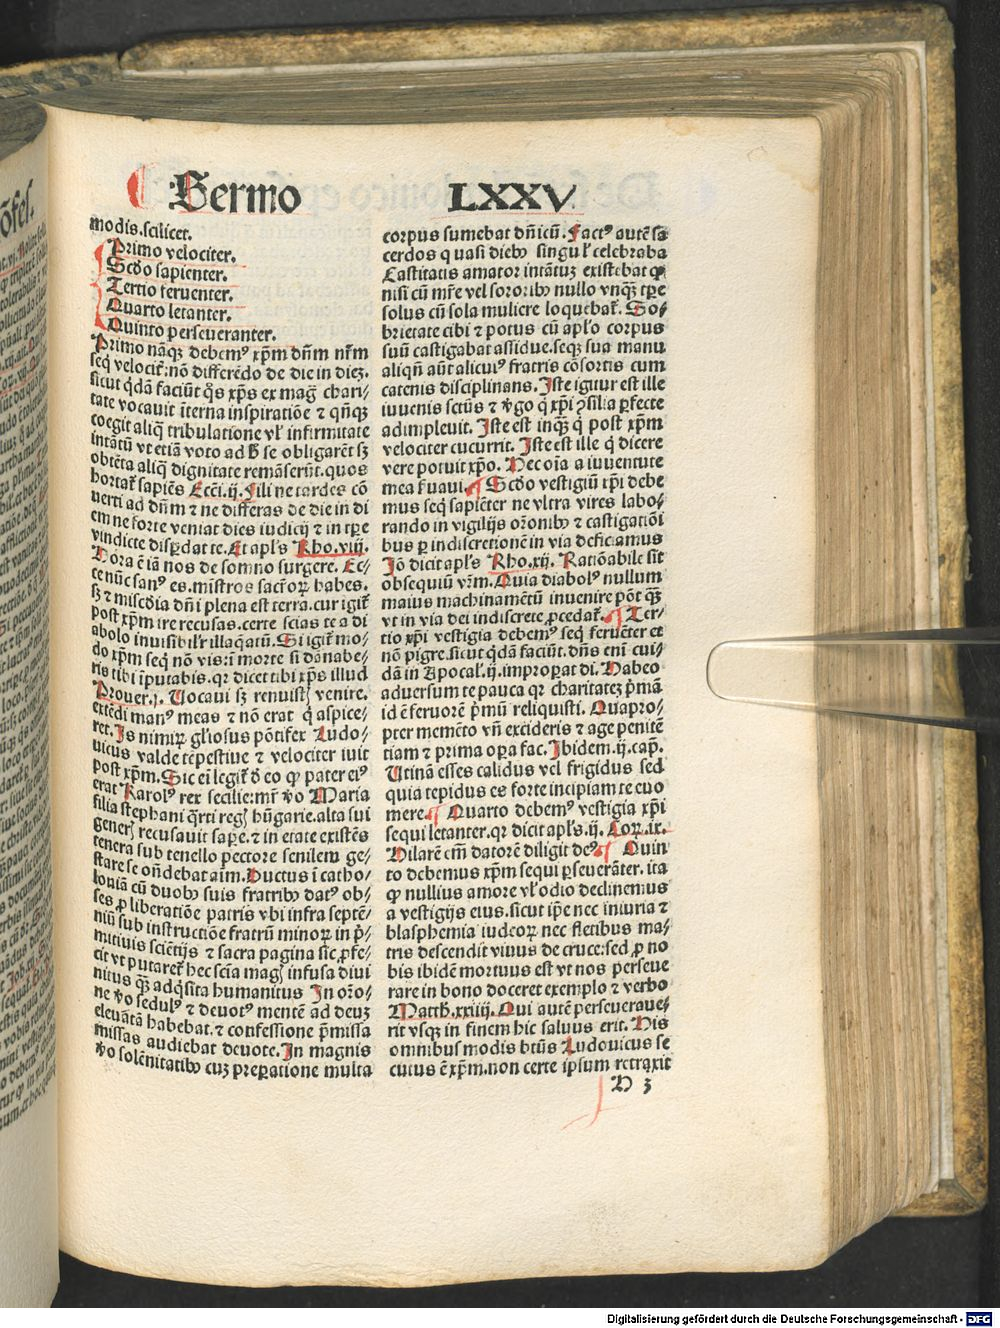 Sermo LXXV
modis.scilicet.
Primo velociter.
Scdo sapienter.
Tertio feruenter.
Quarto letanter.
Quinto perseueranter.
Primo nãqꝫ debemꝰ xp̃m dñm nr̃m
seq̃ velocit̃:nõ differẽdo de die in diez.
sicut q̃dã faciũt q̃s xp̃s ex mag̃ chari⸗
tate vocauit ĩterna inspiratiõe ⁊ qñqꝫ
coegit aliq̃ tribulatione vł infirmitate
intãtũ vt etiã voto ad h̃ se obligarẽt sꝫ
obtẽta aliq̃ dignitate remãserũt.quos
hortat̃ sapiẽs Ecci.ij. Fili ne tardes cõ
uerti ad dñm ⁊ ne differas de die in di
em ne forte veniat dies iudicij ⁊ in tp̃e
vindicte disp̃dat te. Et apl̃s Rho.viij.
Hora ẽ iã nos de somno surgere. Ec⸗
ce nũc sanꝰ es.mĩstros sacr̃oꝝ habes.
sꝫ ⁊ misc̃dia dñi plena est terra.cur igit̃
post xp̃m ire recusas.certe scias te a di
abolo inuisibilr̃ illaq̃atũ. Si igit̃ mo⸗
do xp̃m seq̃ nõ vis:ĩ morte si dãnabe⸗
ris tibi ĩputabis.qr dicet tibi xp̃s illud
Prouer.j. Vocaui sꝫ renuistꝭ venire.
extẽdi manꝰ meas ⁊ nõ erat q̃ aspice⸗
ret. Is nimiꝝ gl̃iosus põtifex Ludo⸗
uicus valde tẽpestiue ⁊ velociter iuit
post xp̃m. Sic ei legit̃ d̃ eo ꝙ pater eiꝰ
erat Karolꝰ rex secilie:mr̃ ṽo Maria
filia stephani q̃rti regꝭ hũgarie.alta sui
generꝭ recusauit sap̃e.⁊ in etate existẽs
tenera sub tenello pectore senilem ge⸗
stare se oñdebat aĩm. Ductus ĩ catho⸗
loniã cũ duobꝰ suis fratribꝰ datꝰ ob⸗
ses ꝓ liberatiõe patris vbi infra septẽ⸗
niũ sub instructiõe fratrũ minoꝝ in p̃⸗
mitiuis sciẽtijs ⁊ sacra pagina sic ꝓfe⸗
cit vt putaret̃ hec scĩa magꝭ infusa diui
nitus qꝫ adq̃sita humanitus In orõ⸗
ne ṽo sedulꝰ ⁊ deuotꝰ mentẽ ad deuz
eleuãtã habebat.⁊ confessione p̃missa
missas audiebat deuote. In magnis
ṽo solẽnitatibꝰ cuz prep̃atione multa
corpus sumebat dñicũ. Factꝰ autẽ sa
cerdos quasi diebꝰ singul̃ celebraba
Castitatis amator intãtuz existebat ꝙ
nisi cũ mr̃e vel sororibꝰ nullo vnqꝫ tp̃e
solus cũ sola muliere loquebat̃. So⸗
brietate cibi ⁊ potus cũ apl̃o corpus
suũ castigabat assidue.seqꝫ sua manu
aliqñ aũt alicuiꝰ fratris cõsortis cum
catenis disciplinans. Iste igitur est ille
iuuenis sctũs ⁊ ṽgo q̃ xp̃i ↄsilia ꝑfecte
adimpleuit. Iste est inqꝫ q̃ post xp̃m
velociter cucurrit. Iste est ille q̃ dicere
vere potuit xp̃o. Hec oĩa a iuuentute
mea ẜuaui. Scdo vestigiũ xp̃i debe
mus seq̃ sapiẽter ne vltra vires labo⸗
rando in vigilijs orõnibꝰ ⁊ castigatiõi
bus ꝑ indiscretionẽ in via deficiamus
Iõ dicit apl̃s Rho.xij. Ratiõabile sit
obsequiũ vr̃m. Quia diabolꝰ nullum
maius machinamẽtũ inuenire põt qꝫ
vt in via dei indiscrete ꝓcedat̃. Ter⸗
tio xp̃i vestigia debemꝰ seq̃ feruẽter et
nõ pigre.sicut q̃dã faciũt.dñs eni cui⸗
dã in Apocal̃.ij.improꝑat di. Habeo
aduersum te pauca qr charitatez p̃mã
id ẽ feruorẽ p̃mũ reliquisti. Quapro⸗
pter memẽto vñ excideris ⁊ age penitẽ
tiam ⁊ prima oꝑa fac. Ibidem.ij.cap̃.
Vtinã esses calidus vel frigidus sed
quia tepidus es forte incipiam te euo
mere. Quarto debemꝰ vestigia xp̃i
sequi letanter.qr dicit apl̃s.ij. Coꝝ.ix.
Hilarẽ em̃ datorẽ diligit deꝰ. Quin
to debemus xp̃m sequi ꝑseuerãter.ita
ꝙ nullius amore vł odio declinemus
a vestigijs eius.sicut ip̃e nec iniuria ⁊
blasphemia iudeoꝝ nec fletibus ma⸗
tris descendit viuus de cruce:sed ꝓ no
bis ibidẽ mortuus est vt nos perseue
rare in bono doceret exemplo ⁊ verbo
Matth̃.xxiiij. Qui autẽ perseueraue⸗
rit vsqꝫ in finem hic saluus erit. His
omnibus modis bt̃us Ludouicus se
cutus ẽ xp̃m.non certe ipsum retraxit
H 3
Digitalisierung gefördert durch die Deutsche Forschungsgemeinschaft - DFG